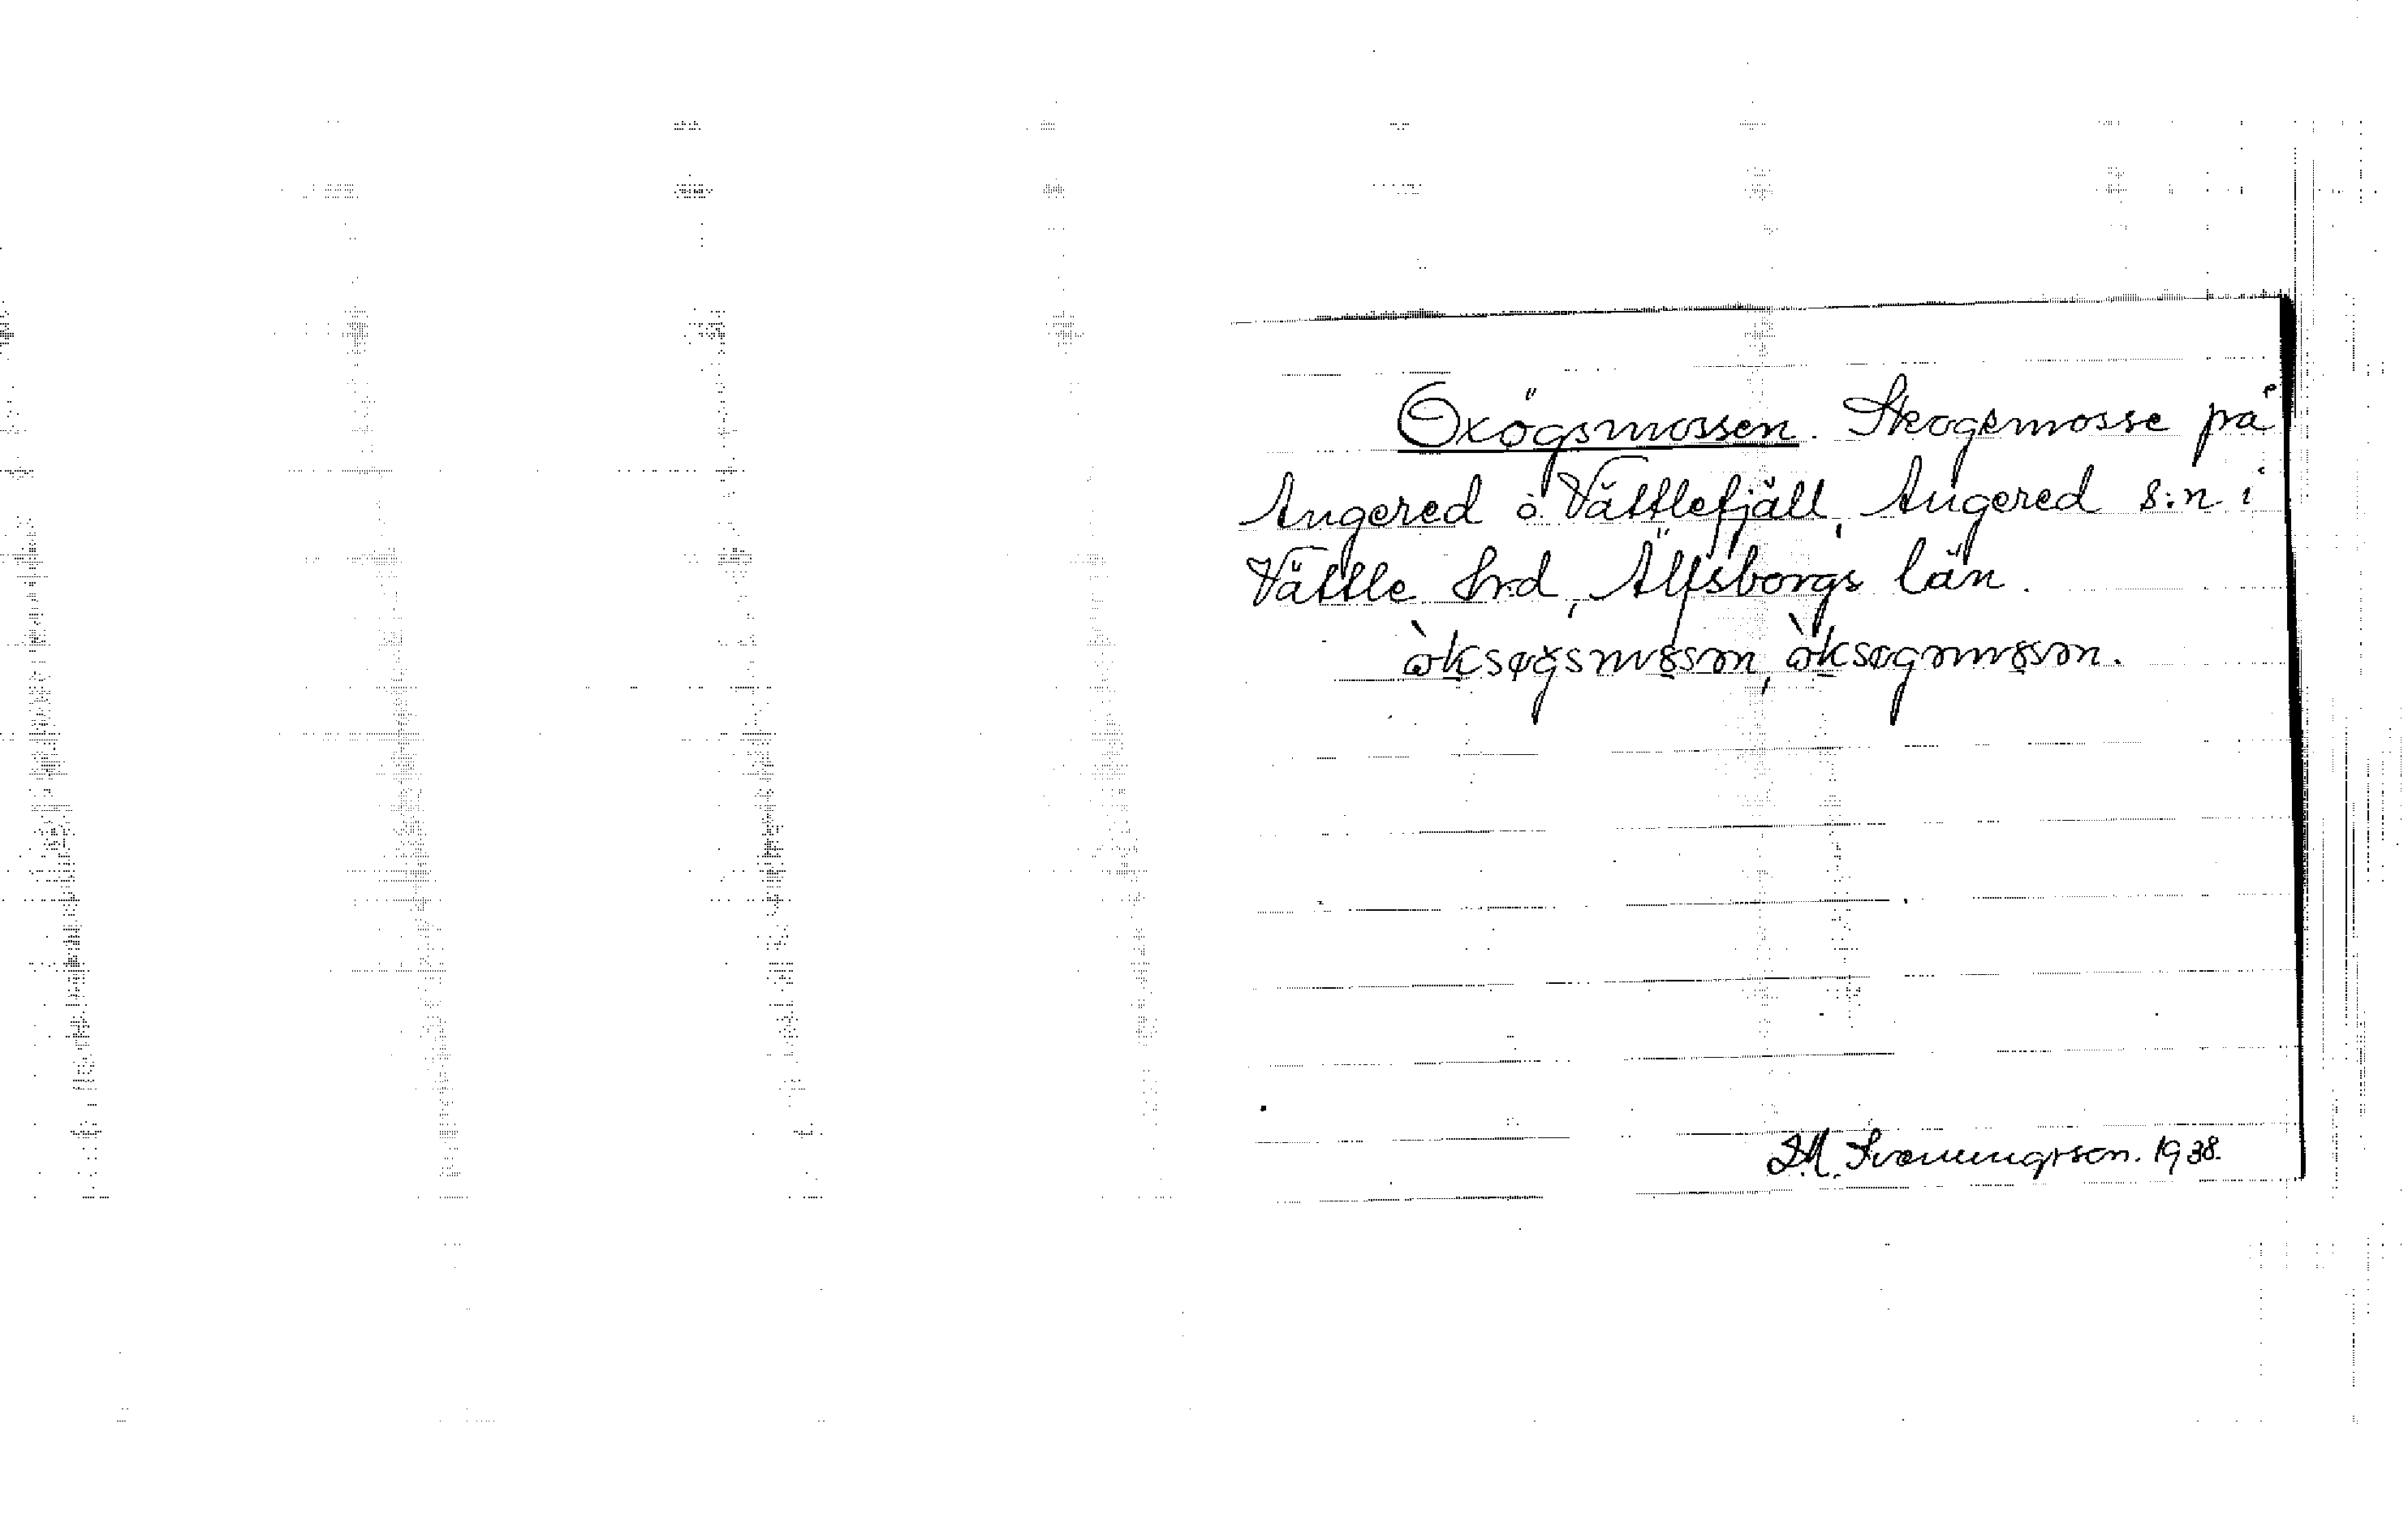 Oxögsmossen. Skogsmosse på
Angered o. Vättlefjäll, Angered s:n i
Vättle hrd, Älfsborgs län.
òksøgsmɷsən, òksøgəmɷsən.
D.M. Svenningsson. 1938.